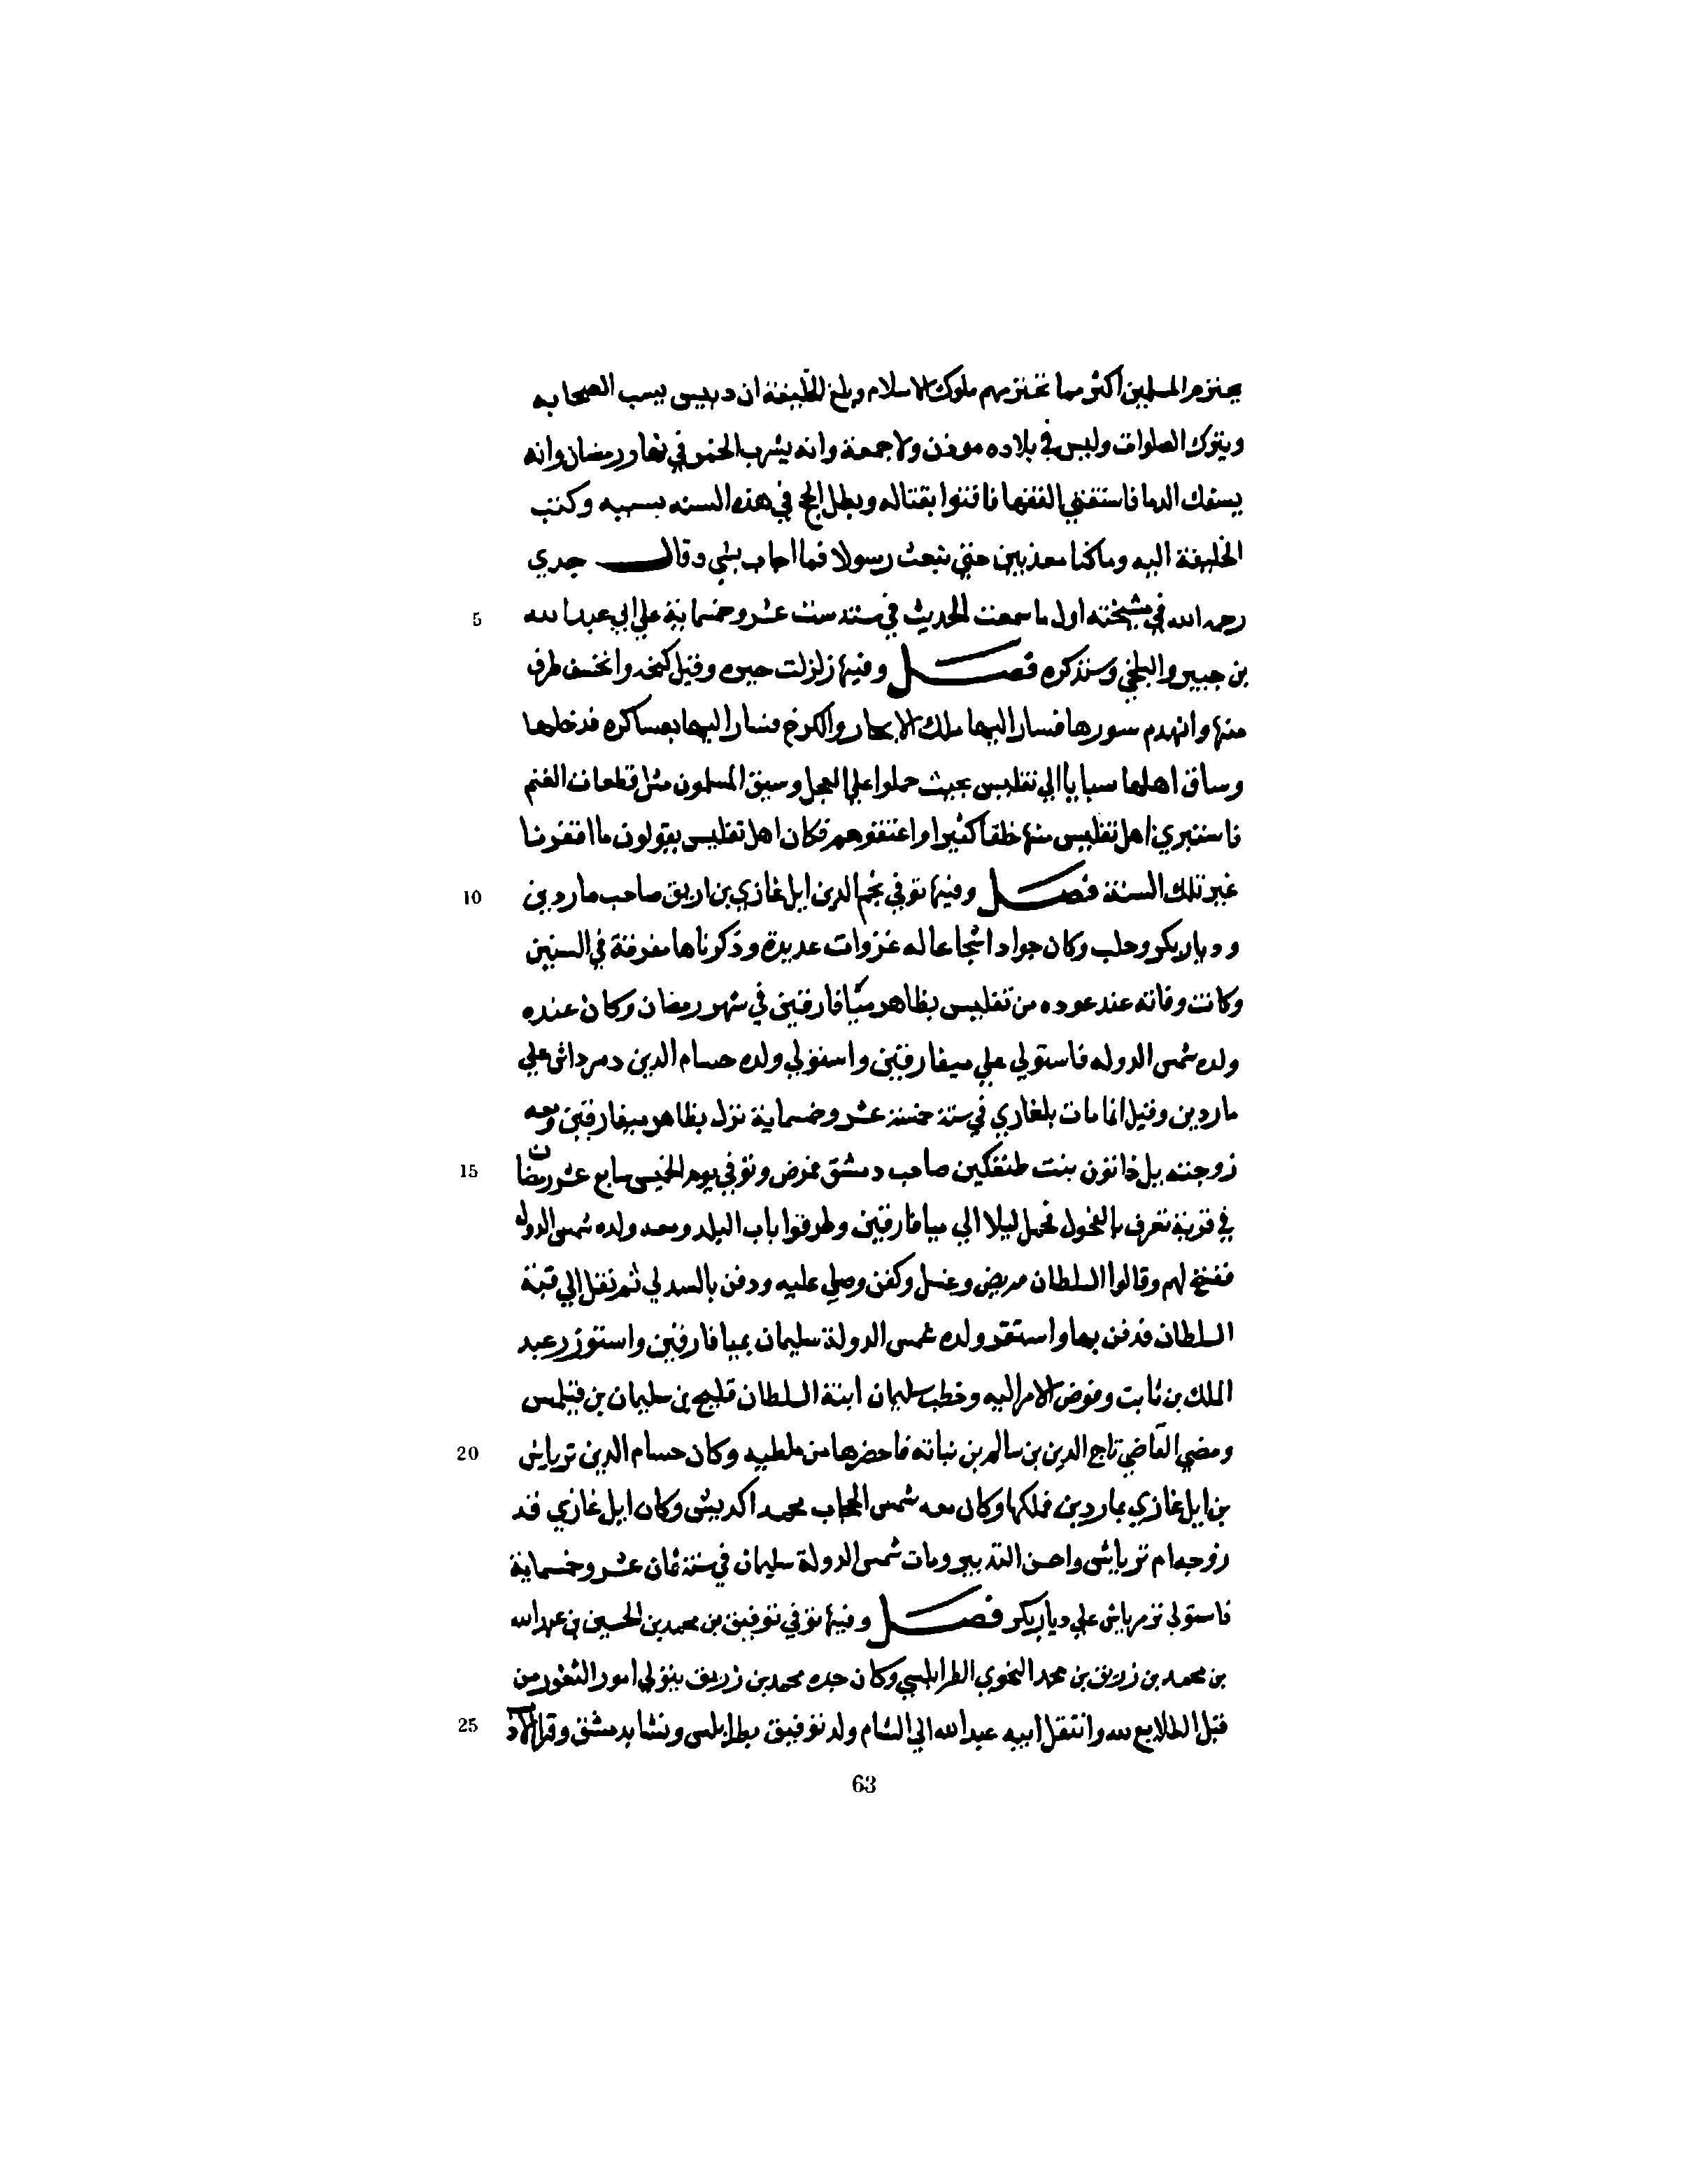 يحترم المسلمين اكثر مما تحترمهم ملوك الاسلام وبلغ الخليفة ان دبيس يسب الصحابه
ويترك الصلوات وليس في بلاده موذن ولا جمعة وانه يشرب الخمر في نهار رمضان وانه
يسفك الدما فاستفتي الفقها فافتوا بقتاله وبطل الحج في هذه السنه بسببه وكتب
الخليفة اليه وماكنا معذبين حتي نبعث رسولا فما اجاب بشي وقال جدي
رحمه الله في مشيخته اول ما سمعت الحديث في سنة ست عشر وخمسماية علي ابي عبدالله 5
بن جبير والبلخي وسنذكره فصل وفيها زلزلت جيزه وقيل كنجه وانخسف طرف
منها وانهدم سورها فسار اليها ملك الابخار والكرخ فسار اليها بعساكره فدخلها
وساق اهلها سبايا الي تفليس بحيث حملوا علي العجل وسيق المسلمون مثل قطعان الغنم
فاستبري اهل تفليس منها خلقا كثيرا واعتقوهم فكان اهل تفليس يقولون ما افتقرنا
غير تلك السنة فصل وفيها توفي نجم الدين ايل غازي بن ارتق صاحب ماردين 10
وديار بكر وحلب وكان جوادا شجاعا له غزوات عديدة وذكرناها مفرقة في السنين
وكانت وفاته عند عوده من تفليس بظاهر ميافارقين في شهر رمضان وكان عنده
ولده شمس الدوله فاستولي علي ميفارقين واستولي ولده حسام الدين دمرداش علي
ماردين وقيل انما مات بلغازي في سنة خمسة عشر وخمساية نزل بظاهر ميفارقين ومعه
زوجته بل خاتون بنت طغتكين صاحب دمشق فمرض وتوفي يوم الخميس سابع عشر رمضان 15
في قرية تعرف بالفحول فحمل ليلا الي ميافارقين وطرقوا باب البلد ومعه ولده شمس الدوله
ففتح لهم وقالوا السلطان مريض وغسل وكفن وصلي عليه ودفن بالسدلي ثم نقل الي قبة
السلطان فدفن بها واستقر ولده شمس الدولة سليمان بميافارقين واستوزر عبد
الملك بن ثابت وفوض الامر اليه وخطب سليمان ابنة السلطان قليج بن سليمان بن قتلمس
ومضي القاضي تاج الدين بن سالم بن نباته فاحضرها من ملطيه وكان حسام الدين تمرباش 20
بن ايل غازي بماردين فملكها وكان معه شمس الحجاب محمد اكديش وكان ايل غازي قد
زوجه ام تمرباش واحسن التدبير ومات شمس الدولة سليمان في سنة ثمان عشر وخمسماية
فاستولي تمرباش علي ديار بكر فصل وفيها توفي توفيق بن محمد بن الحسين بن عبدالله
بن محمد بن زريق بن محمد النحوي الطرابلسي وكان جده محمد بن زريق يتولي امور الثغور من
قبل الطلايع لله وانتقل ابيه عبدالله الي الشام ولد توفيق بطرابلس ونشا بدمشق وقرا الادب 25
63